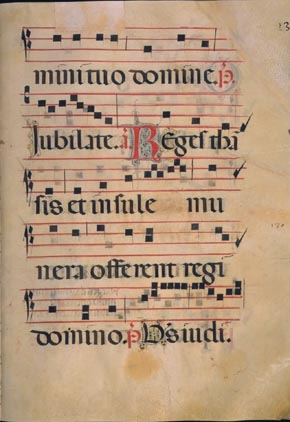 mini tuo domine. p̄.
Jubilate. a. REges thar̄
sis et insule mu
nera offerent regi
domino. p̄. D̄s iudi.